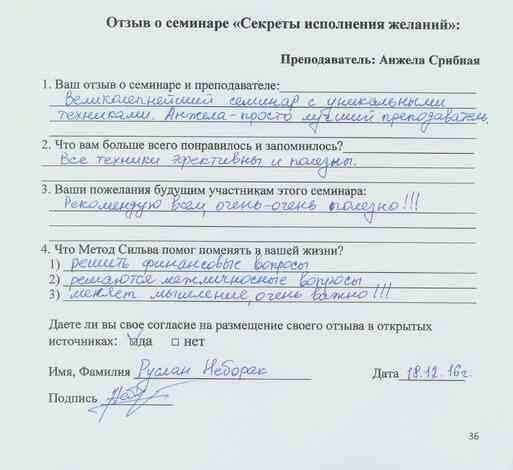 Отзыв о семинаре «Секреты исполнения желаний»:
Преподаватель: Анжела Срибная
1. Ваш отзыв о семинаре и преподавателе:
Великолепнейший семинар с уникальными
техниками. Анжела - просто лучший преподаватель.
2. Что вам больше всего понравилось и запомнилось?
Все техники эфективны и полезны.
3. Ваши пожелания будущим участникам этого семинара:
Рекомендую всем, очень-очень полезно!!!
4. Что Метод Сильва помог поменять в вашей жизни?
1) решить финансовые вопросы
2) решаются межличносные вопросы
3) меняет мышление, очень важно!!!
Даете ли вы свое согласие на размещение своего отзыва в открытых
источниках: да нет
Имя, Фамилия Руслан Неборак Дата 18.12.16г.
Подпись
36